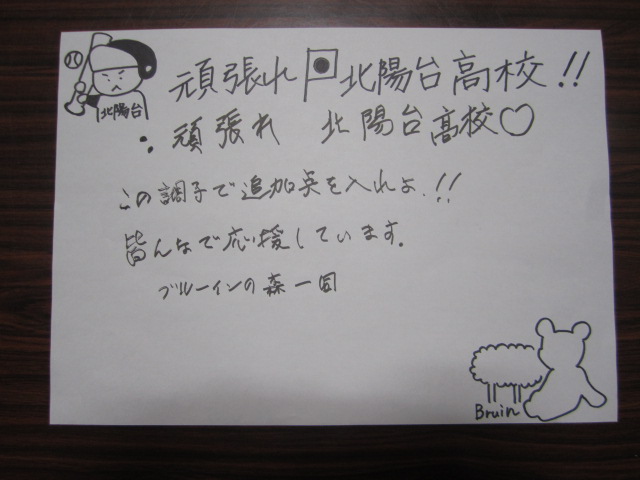 頑張れ 北陽台高校!!
北陽台
・頑張れ 北陽台高校♡
この調子で追加点を入れよ、!!
皆んなで応援しています。
ブルーインの森一同
Bruin